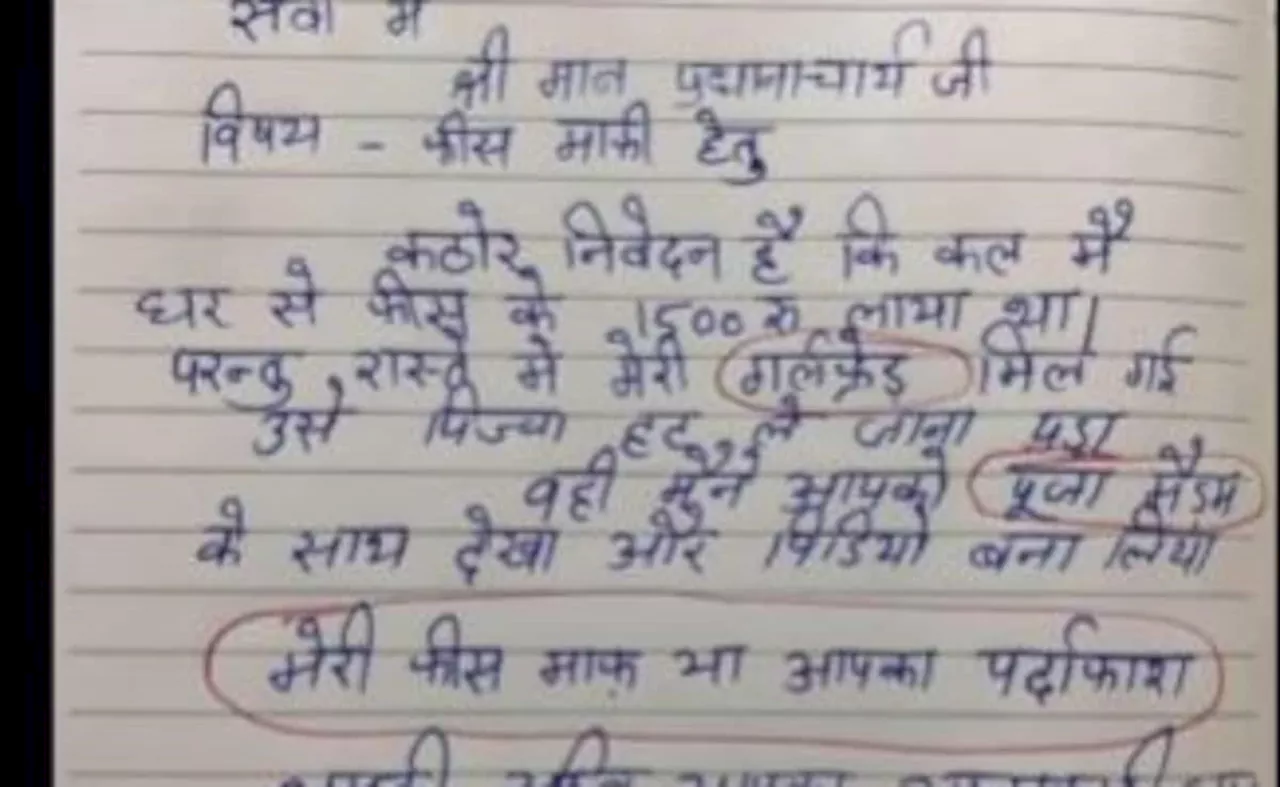 सेवा मे
श्री मान प्रधानाचार्य जी
विषय - फीस माफी हेतु
कठोर निवेदन है कि कल मै
घर से फीस के 1500 रु लाया था।
परन्तु, रास्ते मे मेरी गर्लफ्रेंड मिल गई
उसे पिज्जा हट ले जाना पड़ा
वही मैने आपको पूजा मैडम
के साथ देखा और विडियो बना लिया
मेरी फीस माफ़ या आपका पर्दाफाश